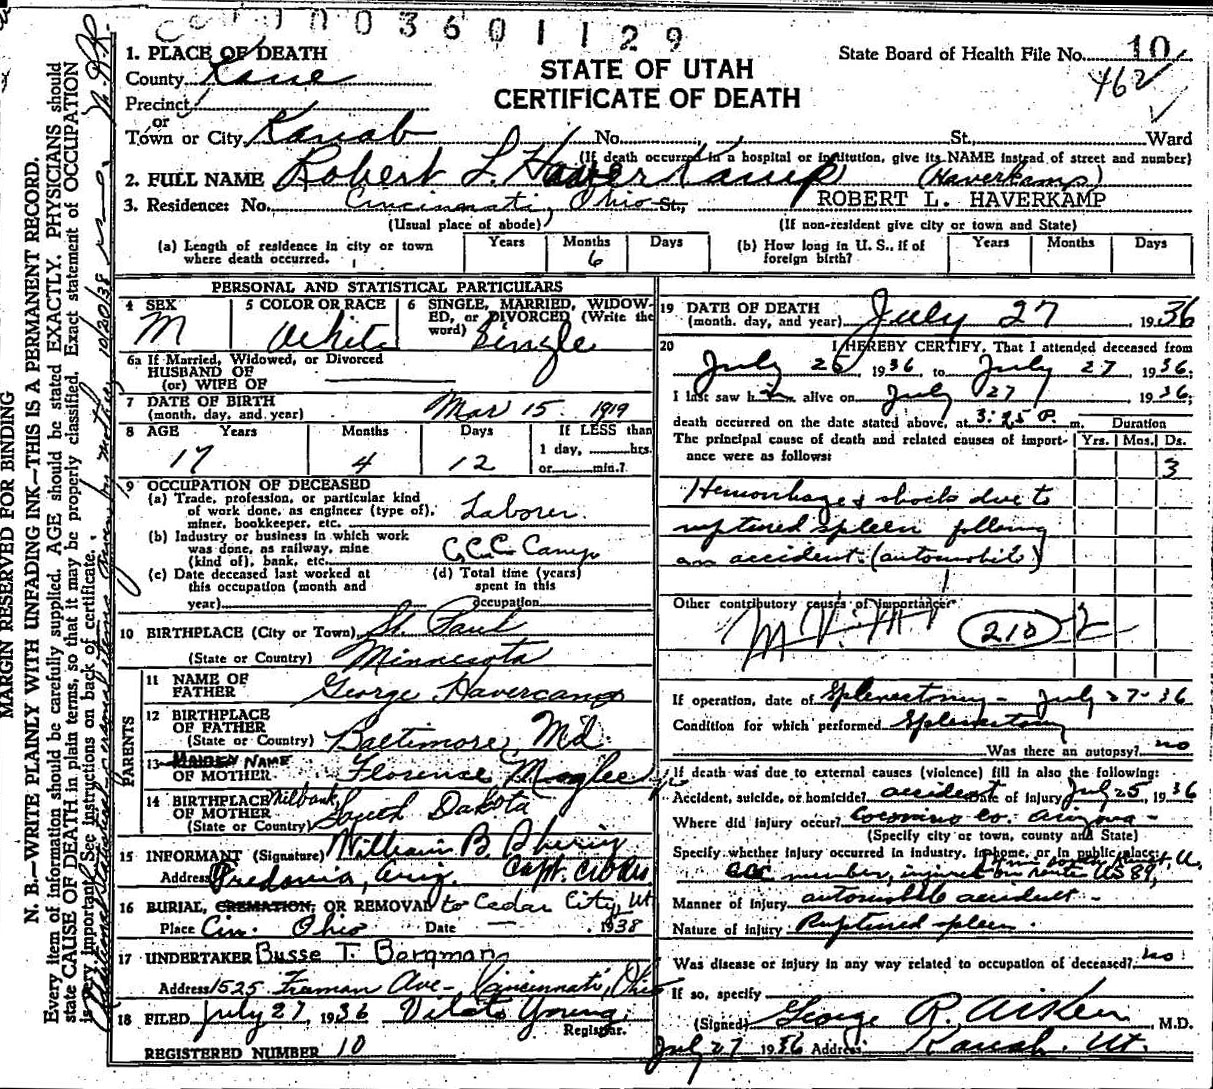 0003601129
1. PLACE OF DEATH
State Board of Health File No. 10
County Kane
STATE OF UTAH
462
Precinct
CERTIFICATE OF DEATH
or
Town or City Kanab No. St., Ward
(If death occurred in a hospital or institution, give its NAME instead of street and number)
2. FULL NAME Robert L. HaverKamp (Haverkamp)
3. Residence: No. Cincinnati, Ohio St., ROBERT L. HAVERKAMP
(Usual place of abode) (If non-resident give city or town and State)
(a) Length of residence in city or town where death occurred. Years Months 6 Days
(b) How long in U. S., if of foreign birth? Years Months Days
PERSONAL AND STATISTICAL PARTICULARS
4 SEX M
5 COLOR OR RACE White
6 SINGLE, MARRIED, WIDOWED, or DIVORCED (Write the word) Single
6a If Married, Widowed, or Divorced
HUSBAND OF
(or) WIFE OF
7 DATE OF BIRTH
(month, day, and year) Mar 15 1919
8 AGE Years 17 Months 4 Days 12
If LESS than
1 day, hrs.
or min.?
9 OCCUPATION OF DECEASED
(a) Trade, profession, or particular kind
of work done, as engineer (type of), Laborer.
miner, bookkeeper, etc.
(b) Industry or business in which work
was done, as railway, mine C.C.C. Camp
(kind of), bank, etc.
(c) Date deceased last worked at
this occupation (month and
year)
(d) Total time (years)
spent in this
occupation
10 BIRTHPLACE (City or Town) St. Paul
(State or Country) Minnesota
PARENTS
11 NAME OF
FATHER George Havercamp
12 BIRTHPLACE
OF FATHER
(State or Country) Baltimore, Md.
13 MAIDEN NAME
OF MOTHER Florence
14 BIRTHPLACE Milbank
OF MOTHER South Dakota
(State or Country)
15 INFORMANT (Signature) William B.
Address Fredonia, Ariz. Capt.
16 BURIAL, CREMATION, OR REMOVAL to Cedar City, Ut
Place Cin. Ohio Date 1938
17 UNDERTAKER Busse T. Borgman
Address 1525 Freeman Ave - Cincinnati, Ohio
18 FILED July 27, 1936 Young
Registrar.
REGISTERED NUMBER 10
19 DATE OF DEATH
(month, day, and year) July 27 1936
20 I HEREBY CERTIFY, That I attended deceased from
July 26 1936, to July 27 1936;
I last saw him alive on July 27 1936;
death occurred on the date stated above, at 3:25 P. m.
Duration
The principal cause of death and related causes of importance were as follows: Yrs. Mos. Ds.
3
Hemorrhage & shock due to
ruptured spleen following
an accident (automobile)
Other contributory causes of importance:
210
If operation, date of Splenectomy - July 27-36
Condition for which performed Splenectomy
Was there an autopsy? no
If death was due to external causes (violence) fill in also the following:
Accident, suicide, or homicide? accident Date of injury July 25, 1936
Where did injury occur? Coconino Co. Arizona -
(Specify city or town, county and State)
Specify whether injury occurred in industry, in home, or in public place:
CCC member, injured en route US 89,
Manner of injury automobile accident -
Nature of injury Ruptured spleen.
Was disease or injury in any way related to occupation of deceased? no
If so, specify
(Signed) George R. Aiken M.D.
July 27 1936 Address Kanab, Ut.
MARGIN RESERVED FOR BINDING
N. B.—WRITE PLAINLY WITH UNFADING INK—THIS IS A PERMANENT RECORD.
Every item of information should be carefully supplied. AGE should be stated EXACTLY. PHYSICIANS should
state CAUSE OF DEATH in plain terms, so that it may be properly classified. Exact statement of OCCUPATION
is very important. See instructions on back of certificate.
10/20/38